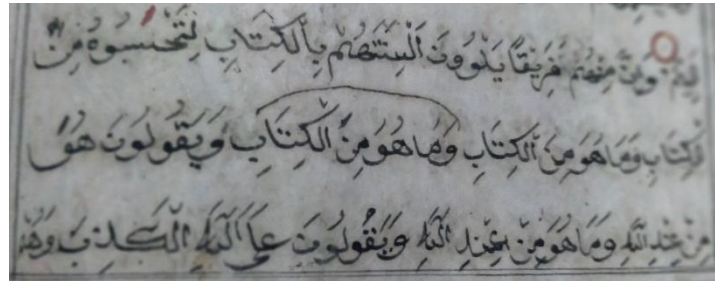 مِنْهُمْ فَرِيقًا يَلْوُونَ اَلْسِنَتَهُمْ بِالْكِتَابِ لِتَحْسَبُوهُ مِنَ
الْكِتَابِ وَمَا هُوَ مِنَ الْكِتَابِ وَمَا هُوَ مِنَ الْكِتَابِ وَيَقُولُونَ هُوَ
مِنْ عِنْدِ اللّٰهِ وَمَا هُوَ مِنْ عِنْدِ اللّٰهِ وَيَقُولُونَ عَلَى اللّٰهِ الْكَذِبَ وَهُمْ